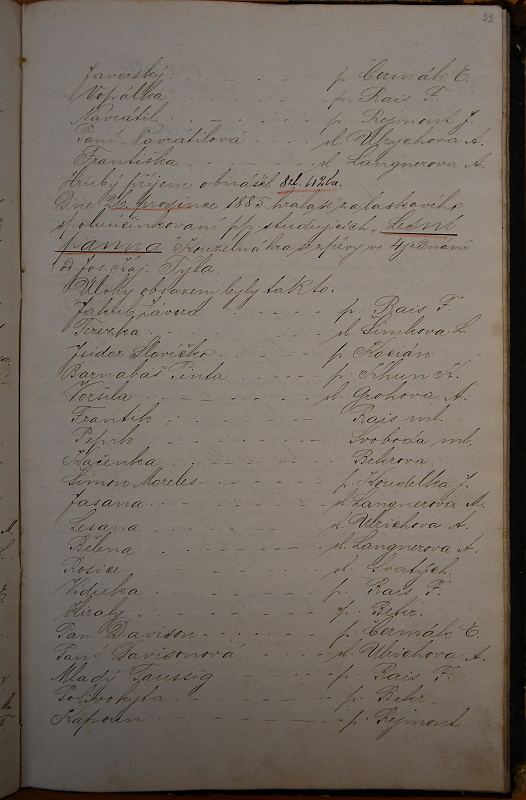 33
Javorský - - - - p. Čermák E.
Vopálka - - - - p. Rais F.
Navrátil - - - - p. Rejmont J.
Paní Navrátilová - - sl. Ulrychova A.
Františka - - - - sl. Langnerova A.
Hrubý příjem obnášel 8zl. 42kr.
Dne 26. prosince 1885 hrálase za laskavého
spoluúčinkování pp. studujících „Lesní
panna" Kouzelná hra se zpěvy ve 4 jednání
od Jos. Kaj. Tyla.
Úlohy obsazeny byly takto.
Jahlib Závora - - - - p. Rais F.
Terezka - - - - sl. Šimkova L.
Isidor Slavíčko - - - - p. Kocián
Barnabáš Tinta - - - - p. Khun K.
Voršila - - - - sl. Grohova A.
Frantík - - - - Rais ml.
Pepík - - - - Svoboda ml.
Kačenka - - - - Bekrova
Šimon Moreles - - - - p. Koudelka J.
Jasana - - - - sl. Langnerova M.
Lesana - - - - sl. Ulrichova A.
Bělena - - - - sl. Langnerova A.
Rosice - - - - sl.
Viduka - - - - p. Rais F.
- - - - p. Bekr.
Pan Davison - - - - p. Čermák E.
Paní Davisonová - - - sl. Ulrichova A.
Mladý Taussig - - - - p. Rais F.
Pobivokyta - - - - p. Bekr.
Kapoun - - - - p. Rejmont